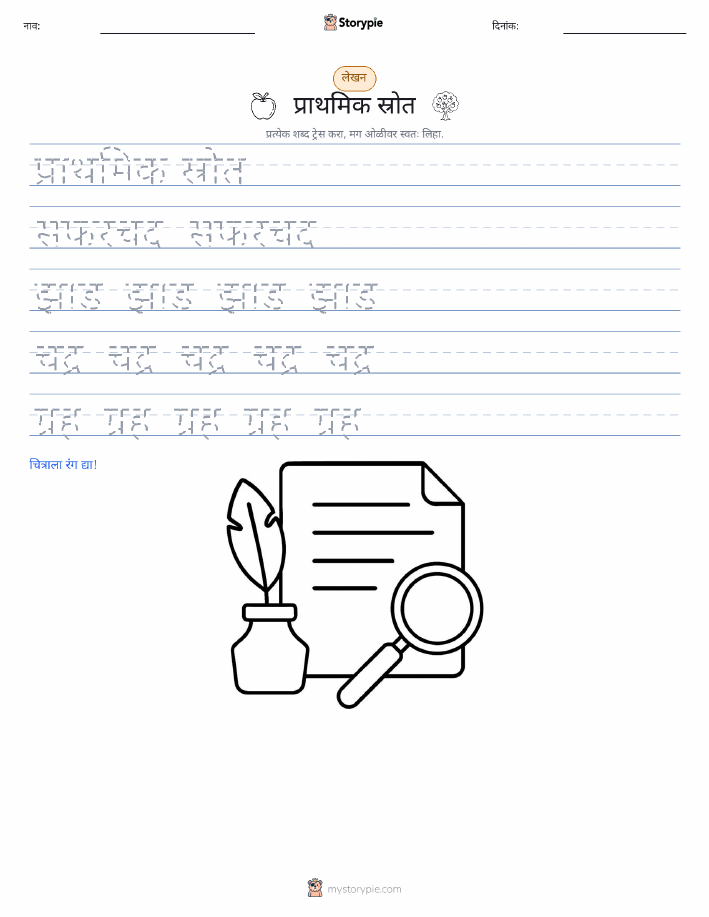 नाव:
Storypie
दिनांक:
लेखन
प्राथमिक स्रोत
प्रत्येक शब्द ट्रेस करा, मग ओळीवर स्वतः लिहा.
प्राथमिक स्रोत
सफरचंद सफरचंद
झाड झाड झाड झाड
चंद्र चंद्र चंद्र चंद्र चंद्र
ग्रह ग्रह ग्रह ग्रह ग्रह
चित्राला रंग द्या!
mystorypie.com